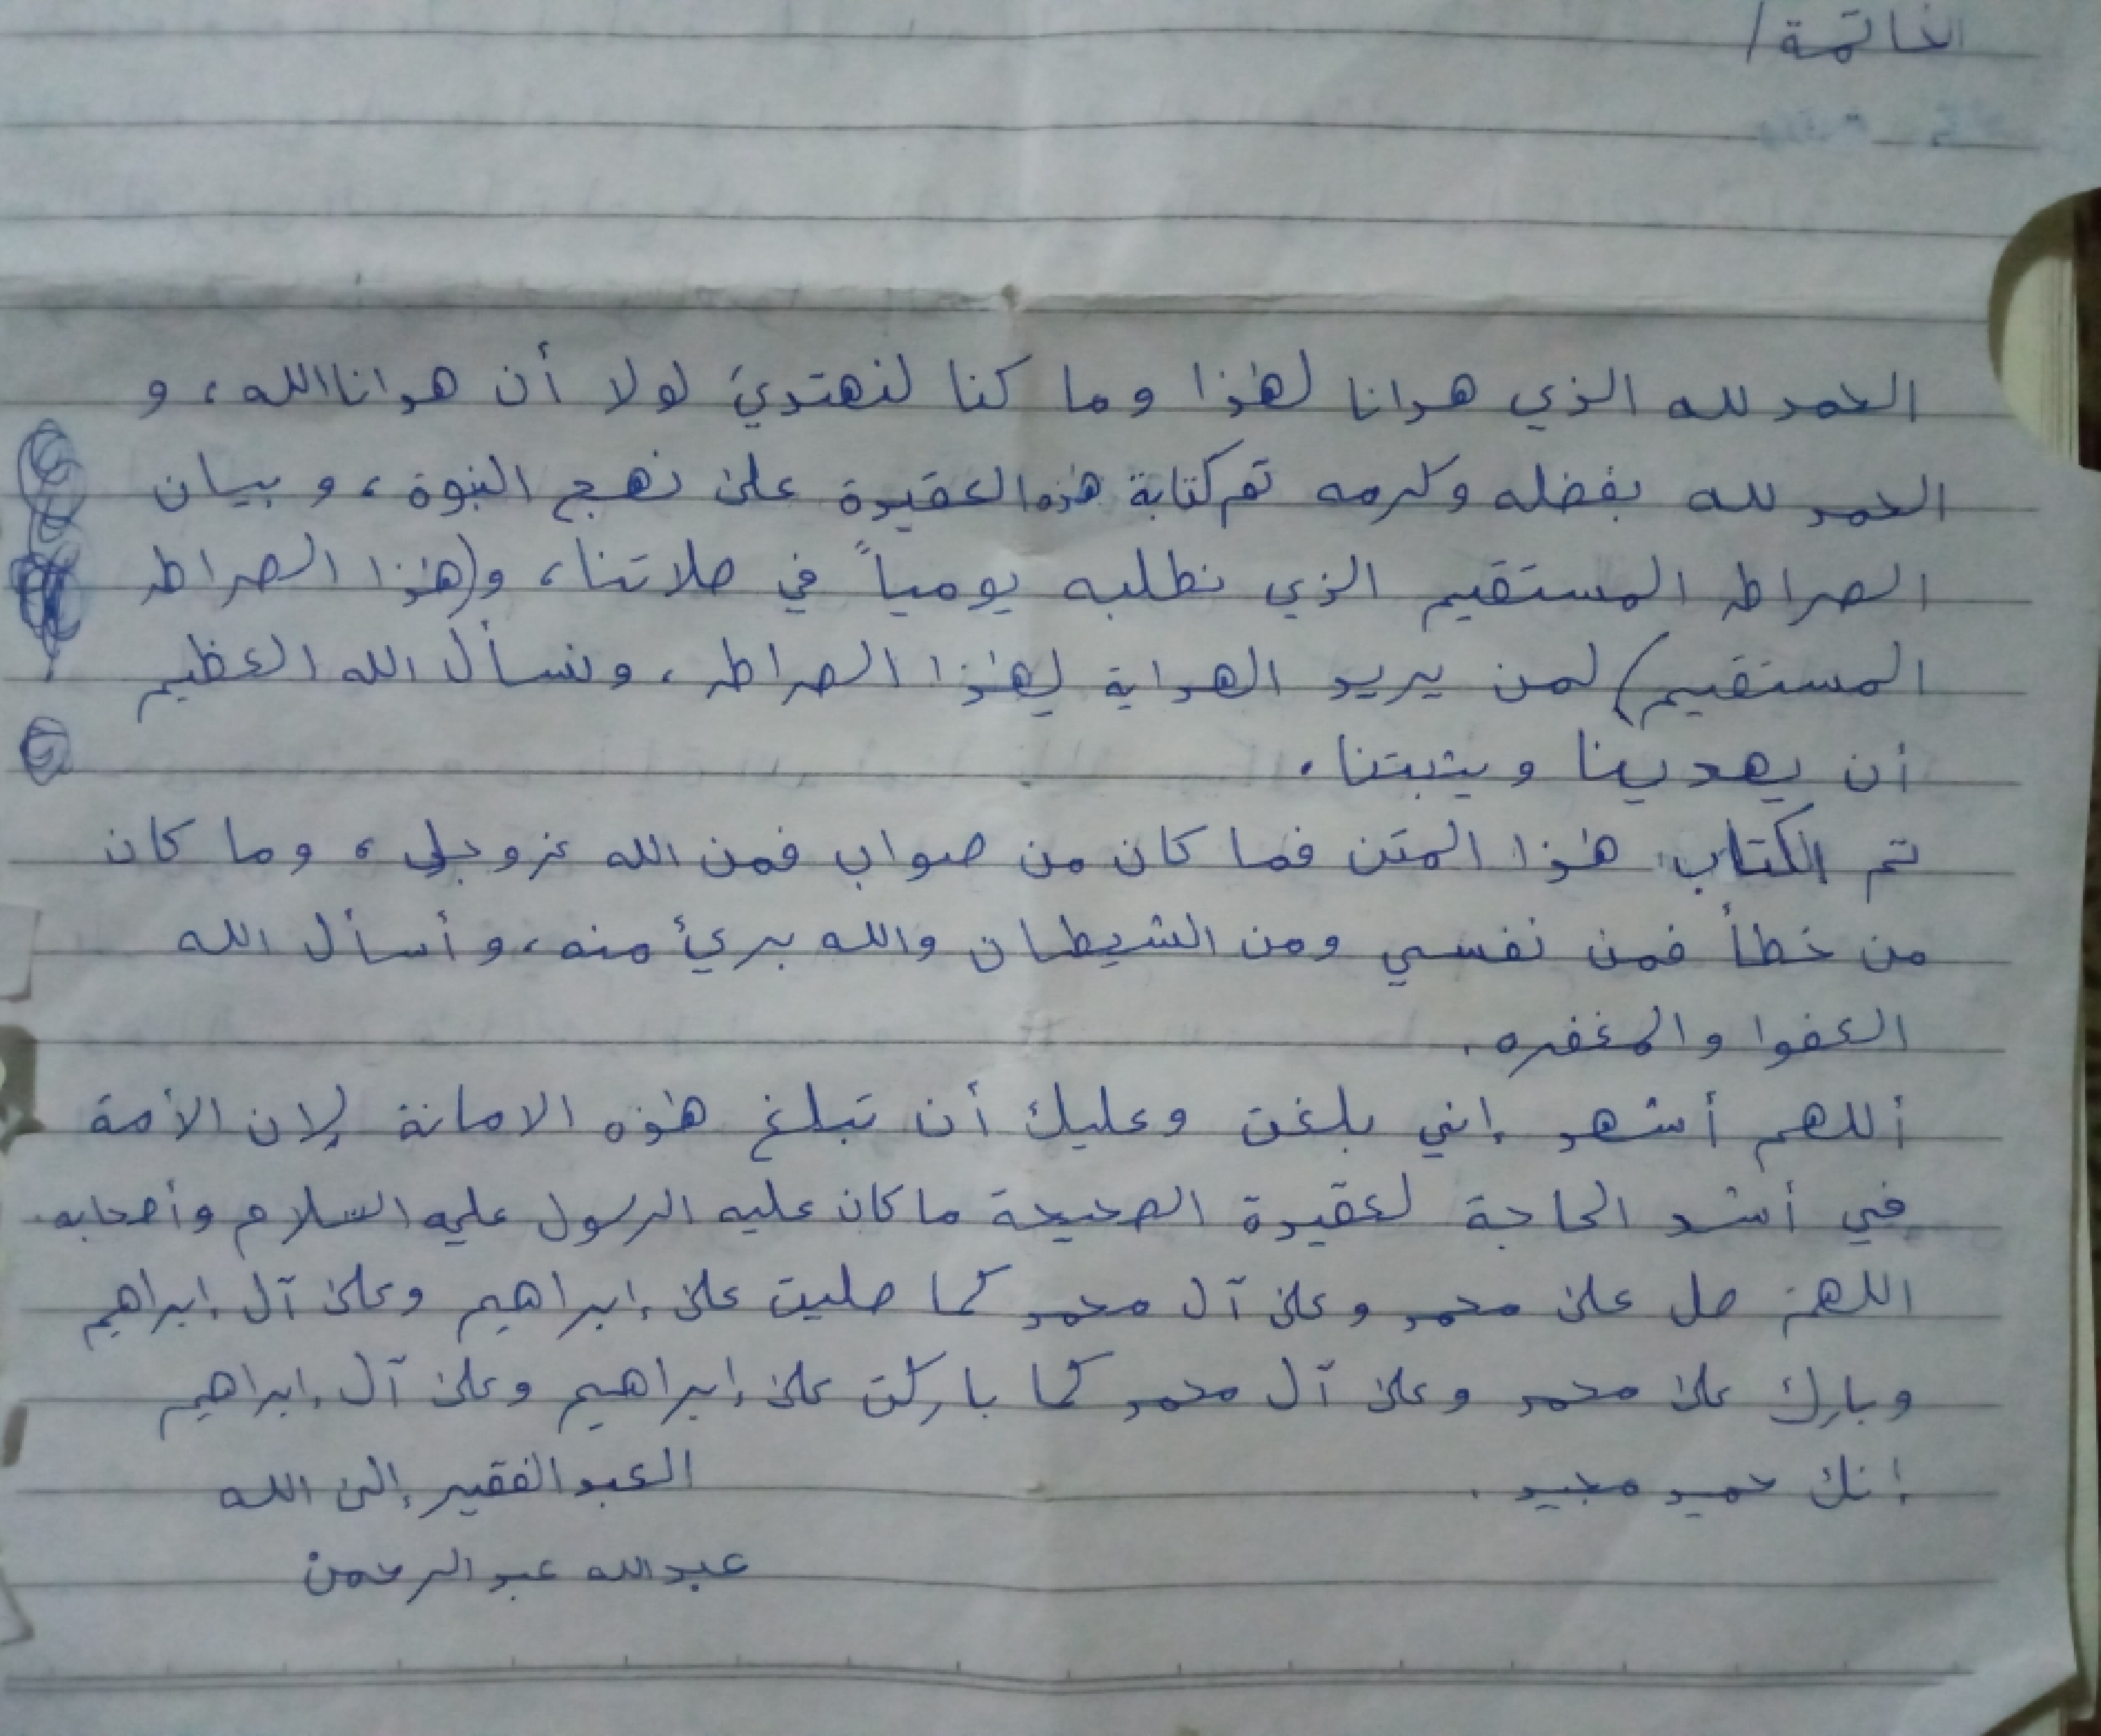 الخاتمة/
الحمد لله الذي هدانا لهذا وما كنا لنهتدي لولا أن هدانا الله، و
الحمد لله بفضله وكرمه تم كتابة هذه العقيدة على نهج النبوة، و بيان
الصراط المستقيم الذي نطلبه يومياً في صلاتنا، و(هذا الصراط
المستقيم) لمن يريد الهداية لهذا الصراط، ونسأل الله العظيم
أن يهدينا ويثبتنا.
تم الكتاب هذا المتن فما كان من صواب فمن الله عزوجل، وما كان
من خطأ فمن نفسي ومن الشيطان والله بريئ منه، وأسأل الله
العفوا والمغفره.
أللهم أشهد إني بلغت وعليك أن تبلغ هذه الامانة لإن الأمة
في أشد الحاجة لعقيدة الصحيحة ما كان عليه الرسول عليه السلام وأصحابه.
اللهم صل على محمد وعلى آل محمد كما صليت على إبراهيم وعلى آل إبراهيم
وبارك على محمد وعلى آل محمد كما باركت على إبراهيم وعلى آل إبراهيم
إنك حميد مجيد.
العبد الفقير إلى الله
عبدالله عبد الرحمن